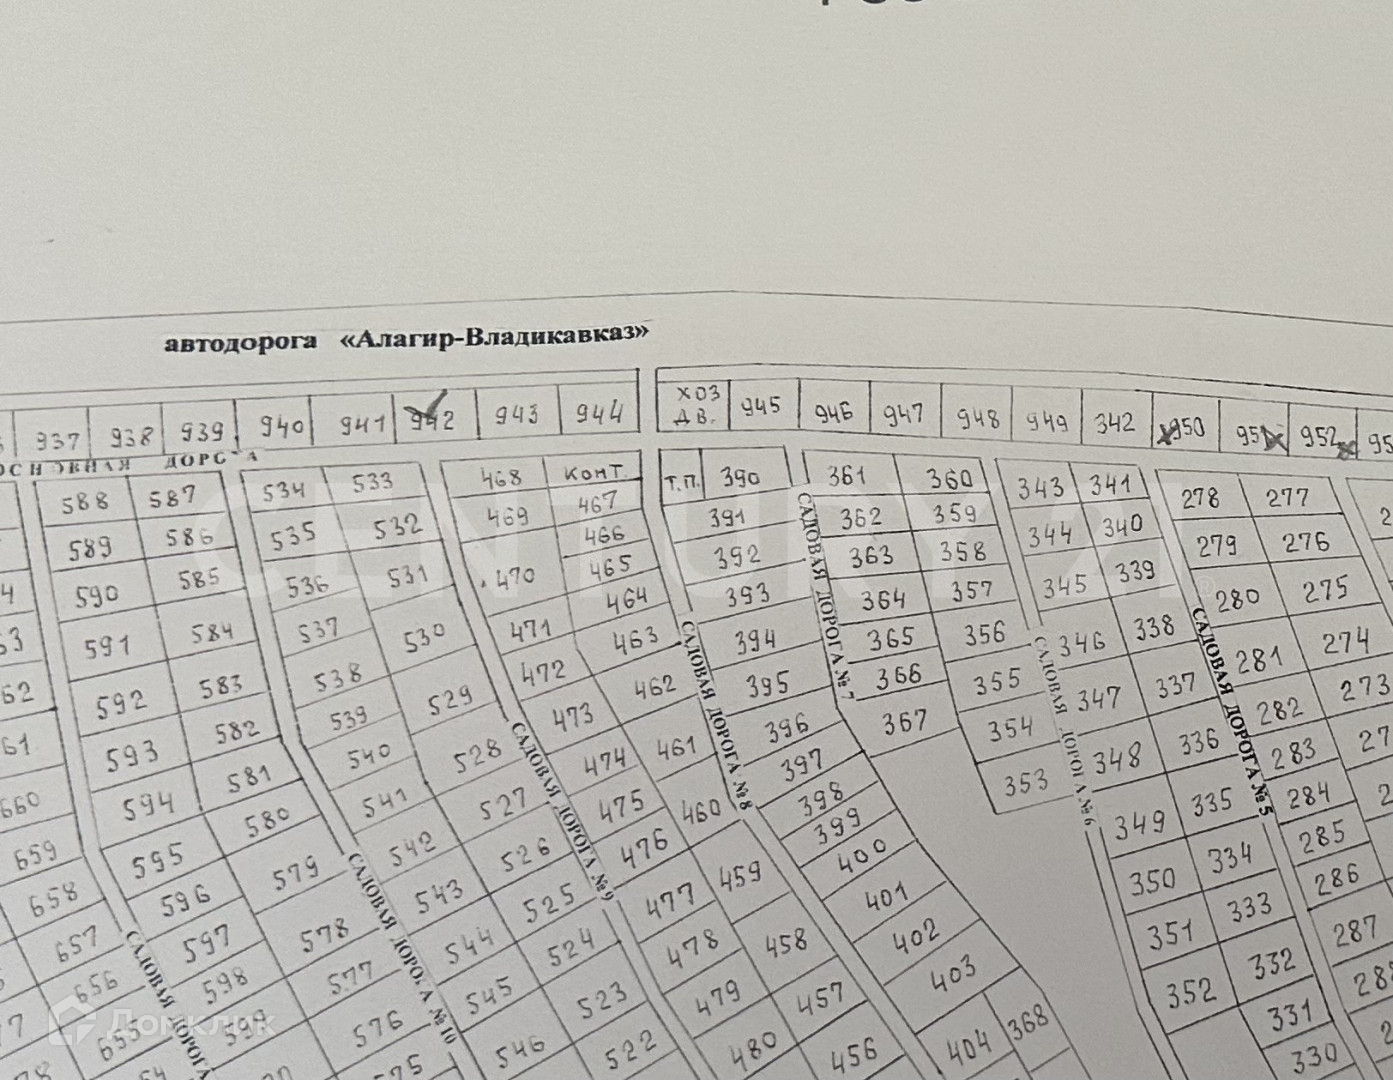 автодорога «Алагир-Владикавказ»
937 938 939 940 941 942 943 944 ХОЗ ДВ. 945 946 947 948 949 342 950 951 952
ДОРОГА
588 587 534 533 468 КОНТ. Т.П. 390 361 360 343 341 278 277
589 586 535 532 469 467 391 362 359 344 340 279 276
590 585 536 531 470 466 392 363 358 345 339 280 275
591 584 537 530 471 465 393 364 357 346 338 281 274
592 583 538 529 472 464 394 365 356 347 337 282 273
593 582 539 528 473 463 395 366 355 348 336 283
594 581 540 527 474 462 396 367 354 349 335 284
595 580 541 526 475 461 397 353 350 334 285
596 579 542 525 476 460 398 351 333 286
597 578 543 524 477 459 399 352 332 287
598 577 544 523 478 458 400 331
599 576 545 522 479 457 401 330
546 480 456 402
403
404 368
660
659
658
657
656
655
САДОВАЯ ДОРОГА
САДОВАЯ ДОРОГА №10
САДОВАЯ ДОРОГА №9
САДОВАЯ ДОРОГА №8
САДОВАЯ ДОРОГА №7
САДОВАЯ ДОРОГА №6
САДОВАЯ ДОРОГА №5
CENTURY 21
Домклик